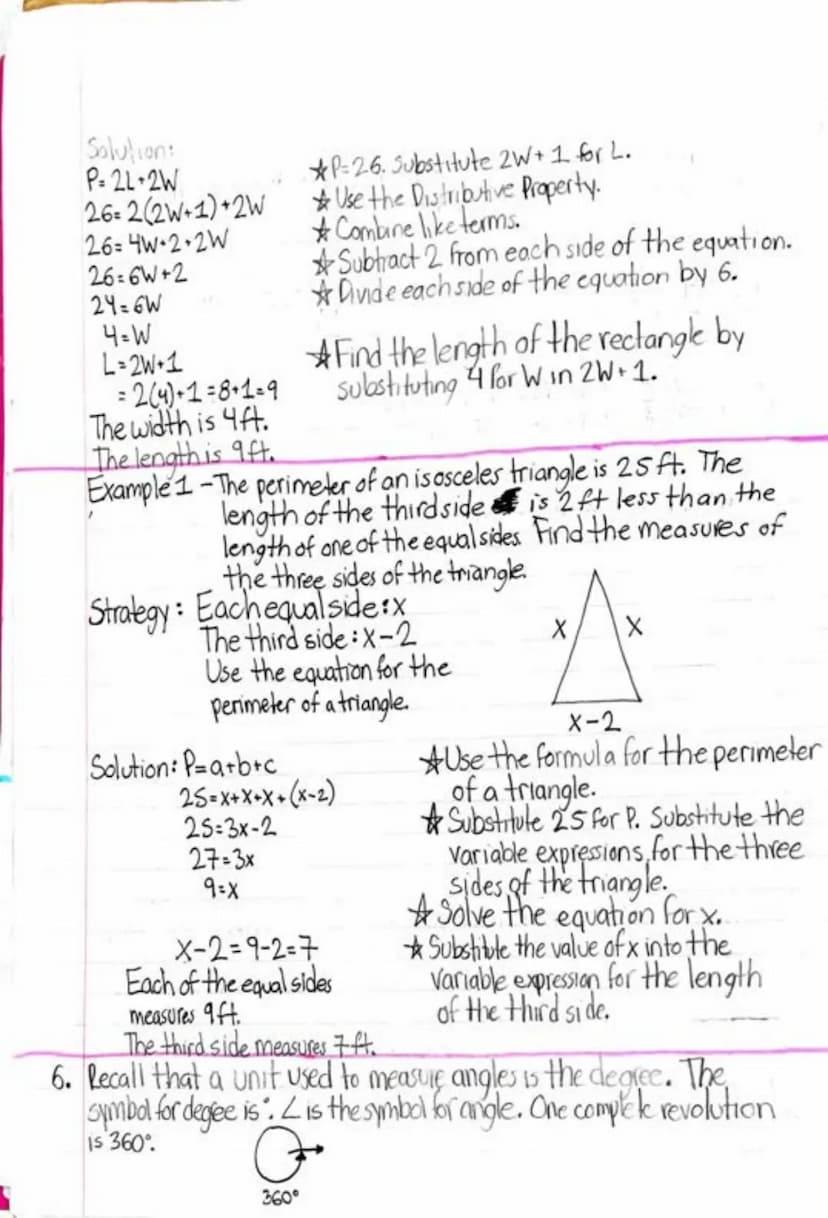 Solution:
P=2L+2W
★P=26. Substitute 2W+1 for L.
26=2(2W+1)+2W
★Use the Distributive Property.
26=4W+2+2W
★Combine like terms.
26=6W+2
★Subtract 2 from each side of the equation.
24=6W
★Divide each side of the equation by 6.
4=W
L=2W+1
★Find the length of the rectangle by
=2(4)+1=8+1=9
substituting 4 for W in 2W+1.
The width is 4ft.
The length is 9ft.
Example 1 -The perimeter of an isosceles triangle is 25ft. The
length of the third side is 2ft less than the
length of one of the equal sides. Find the measures of
the three sides of the triangle.
Strategy: Each equal side: x
The third side: x-2
Use the equation for the
perimeter of a triangle.
X X
X-2
Solution: P=a+b+c
★Use the formula for the perimeter
of a triangle.
25=x+x+x+(x-2)
★Substitute 25 for P. Substitute the
25=3x-2
variable expressions for the three
27=3x
sides of the triangle.
9=x
★Solve the equation for x.
x-2=9-2=7
★Substitute the value of x into the
Each of the equal sides
variable expression for the length
measures 9ft.
of the third side.
The third side measures 7ft.
6. Recall that a unit used to measure angles is the degree. The
symbol for degree is °. ∠ is the symbol for angle. One complete revolution
is 360°.
360°